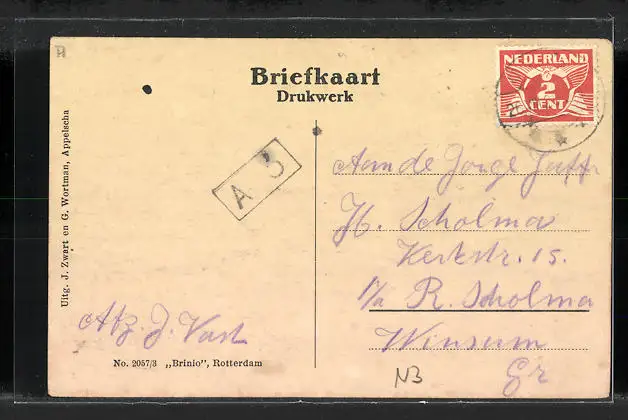 Briefkaart
Drukwerk
NEDERLAND
2
CENT
Uitg. J. Zwart en G. Wortman, Appelscha
A 3
Aan de Jonge Juffr
H. Scholma
Kerkstr. 15.
P/a R. Scholma
Winsum
Gr
Afz. J. Vast
No. 2057/3 „Brinio", Rotterdam
N3